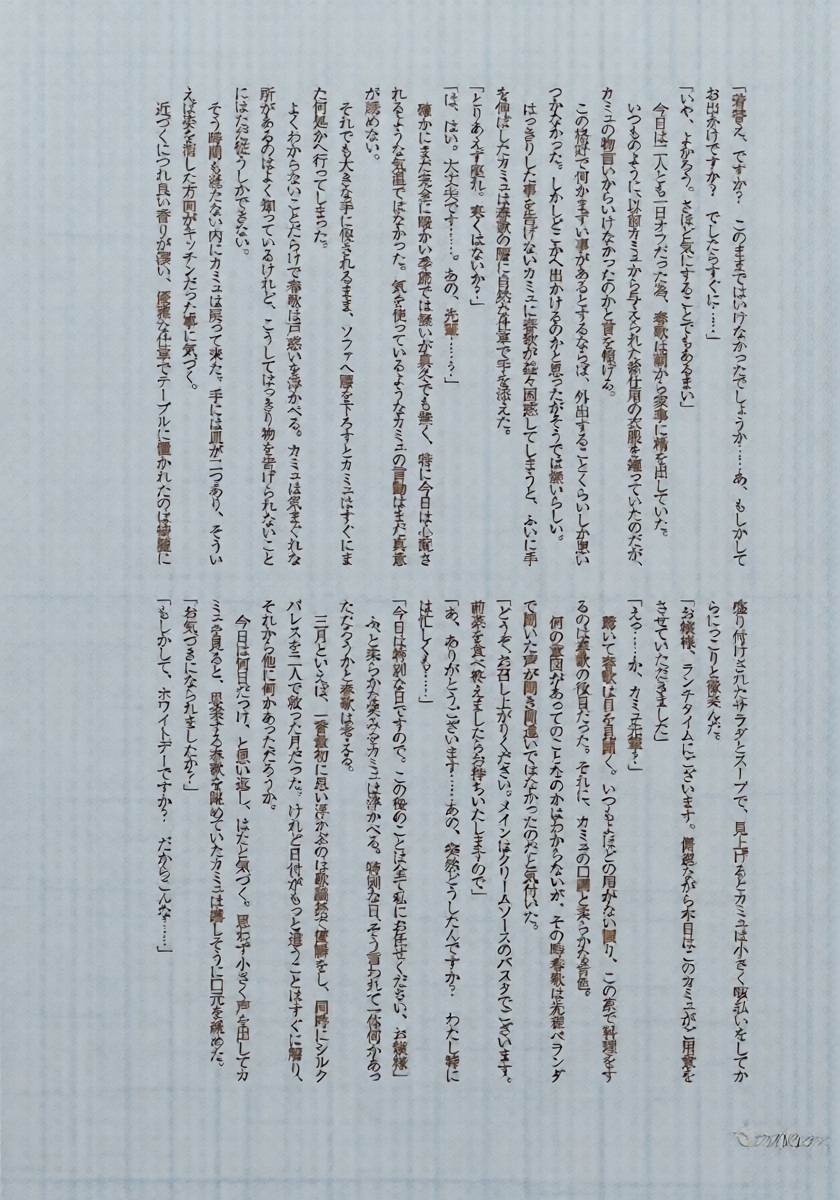 「着替え、ですか？　このままではいけなかったでしょうか……あ、もしかして
お出かけですか？　でしたらすぐに……」
「いや、よかろう。さほど気にすることでもあるまい」
今日は二人とも一日オフだった為、春歌は朝から家事に精を出していた。
いつものように、以前カミュから与えられた給仕用の衣服を纏っていたのだが、
カミュの物言いからいけなかったのかと首を傾げる。
この格好で何かまずい事があるとするならば、外出することくらいしか思い
つかなかった。しかしどこかへ出かけるのかと思ったがそうでは無いらしい。
はっきりした事を告げないカミュに春歌が益々困惑してしまうと、ふいに手
を伸ばしたカミュは春歌の腰に自然な仕草で手を添えた。
「とりあえず座れ。寒くはないか？」
「は、はい。大丈夫です……。あの、先輩……？」
確かにまだ完全に暖かい季節では無いが真冬でも無く、特に今日は心配さ
れるような気温ではなかった。気を使っているようなカミュの言動はまだ真意
が読めない。
それでも大きな手に促されるまま、ソファへ腰を下ろすとカミュはすぐにま
た何処かへ行ってしまった。
よくわからないことだらけで春歌は戸惑いを浮かべる。カミュは気まぐれな
所があるのはよく知っているけれど、こうしてはっきり物を告げられないこと
にはただ従うしかできない。
そう時間も経たない内にカミュは戻って来た。手には皿が二つあり、そうい
えば姿を消した方向がキッチンだった事に気づく。
近づくにつれ良い香りが漂い、優雅な仕草でテーブルに置かれたのは綺麗に
盛り付けされたサラダとスープで、見上げるとカミュは小さく咳払いをしてか
らにっこりと微笑んだ。
「お嬢様、ランチタイムにございます。僭越ながら本日はこのカミュがご用意を
させていただきました」
「えっ……か、カミュ先輩？」
驚いて春歌は目を見開く。いつもよほどの用がない限り、この家で料理をす
るのは春歌の役目だった。それに、カミュの口調と柔らかな音色。
何の意図があってのことなのかはわからないが、その時春歌は先程ベランダ
で聞いた声が聞き間違いではなかったのだと気付いた。
「どうぞ、お召し上がりください。メインはクリームソースのパスタでございます。
前菜を食べ終えましたらお持ちいたしますので」
「あ、ありがとうございます……あの、突然どうしたんですか？　わたし特に
は忙しくも……」
「今日は特別な日ですので。この後のことは全て私にお任せください、お嬢様」
ふ、と柔らかな笑みをカミュは浮かべる。特別な日、そう言われて一体何かあっ
ただろうかと春歌は考える。
三月といえば、一番最初に思い浮かぶのは歌謡祭で優勝をし、同時にシルク
パレスを二人で救った月だった。けれど日付がもっと違うことはすぐに解り、
それから他に何かあっただろうか。
今日は何日だっけ、と思い返し、はたと気づく。思わず小さく声を出してカ
ミュを見ると、思案する春歌を眺めていたカミュは楽しそうに口元を緩めた。
「お気づきになられましたか？」
「もしかして、ホワイトデーですか？　だからこんな……」